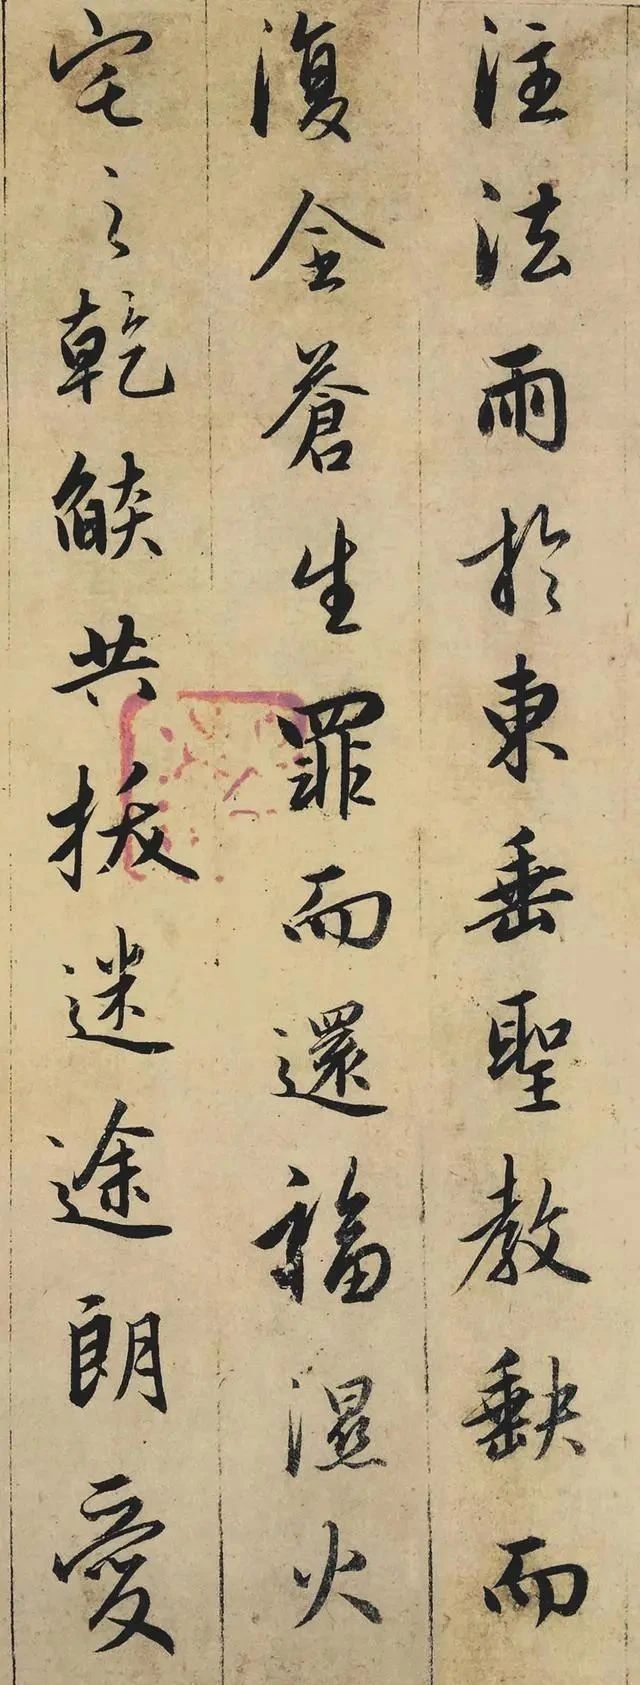 注法雨於東垂聖教缺而
復全蒼生罪而還福濕火
宅之乾燄共拔迷途朗愛